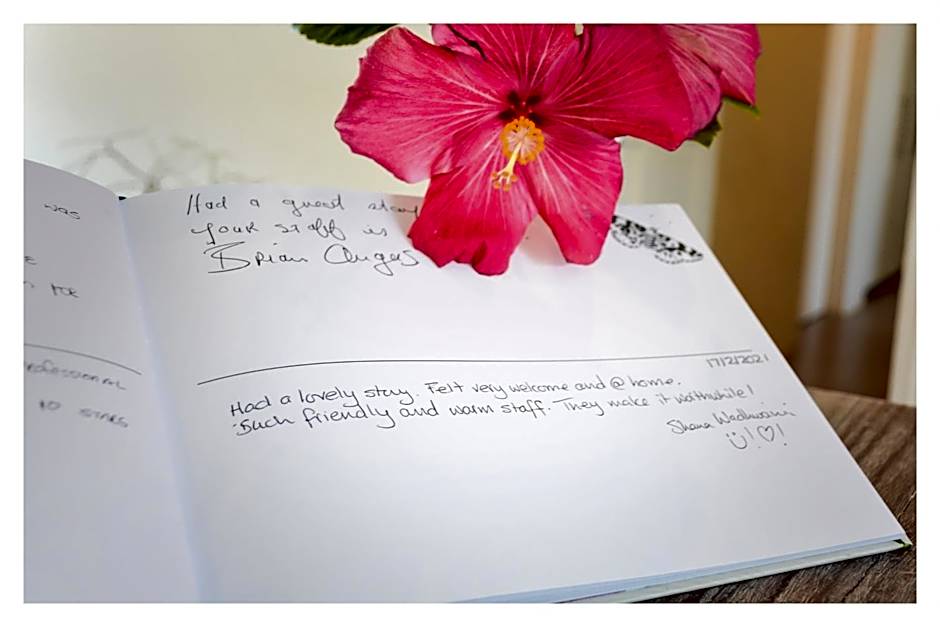 was
TOE
rofessional
10 STARS
Had a great stay
your staff is
Brian
17/2/2021
Had a lovely stay. Felt very welcome and @ home.
Such friendly and warm staff. They make it worthwhile!
Shana Wadhwani